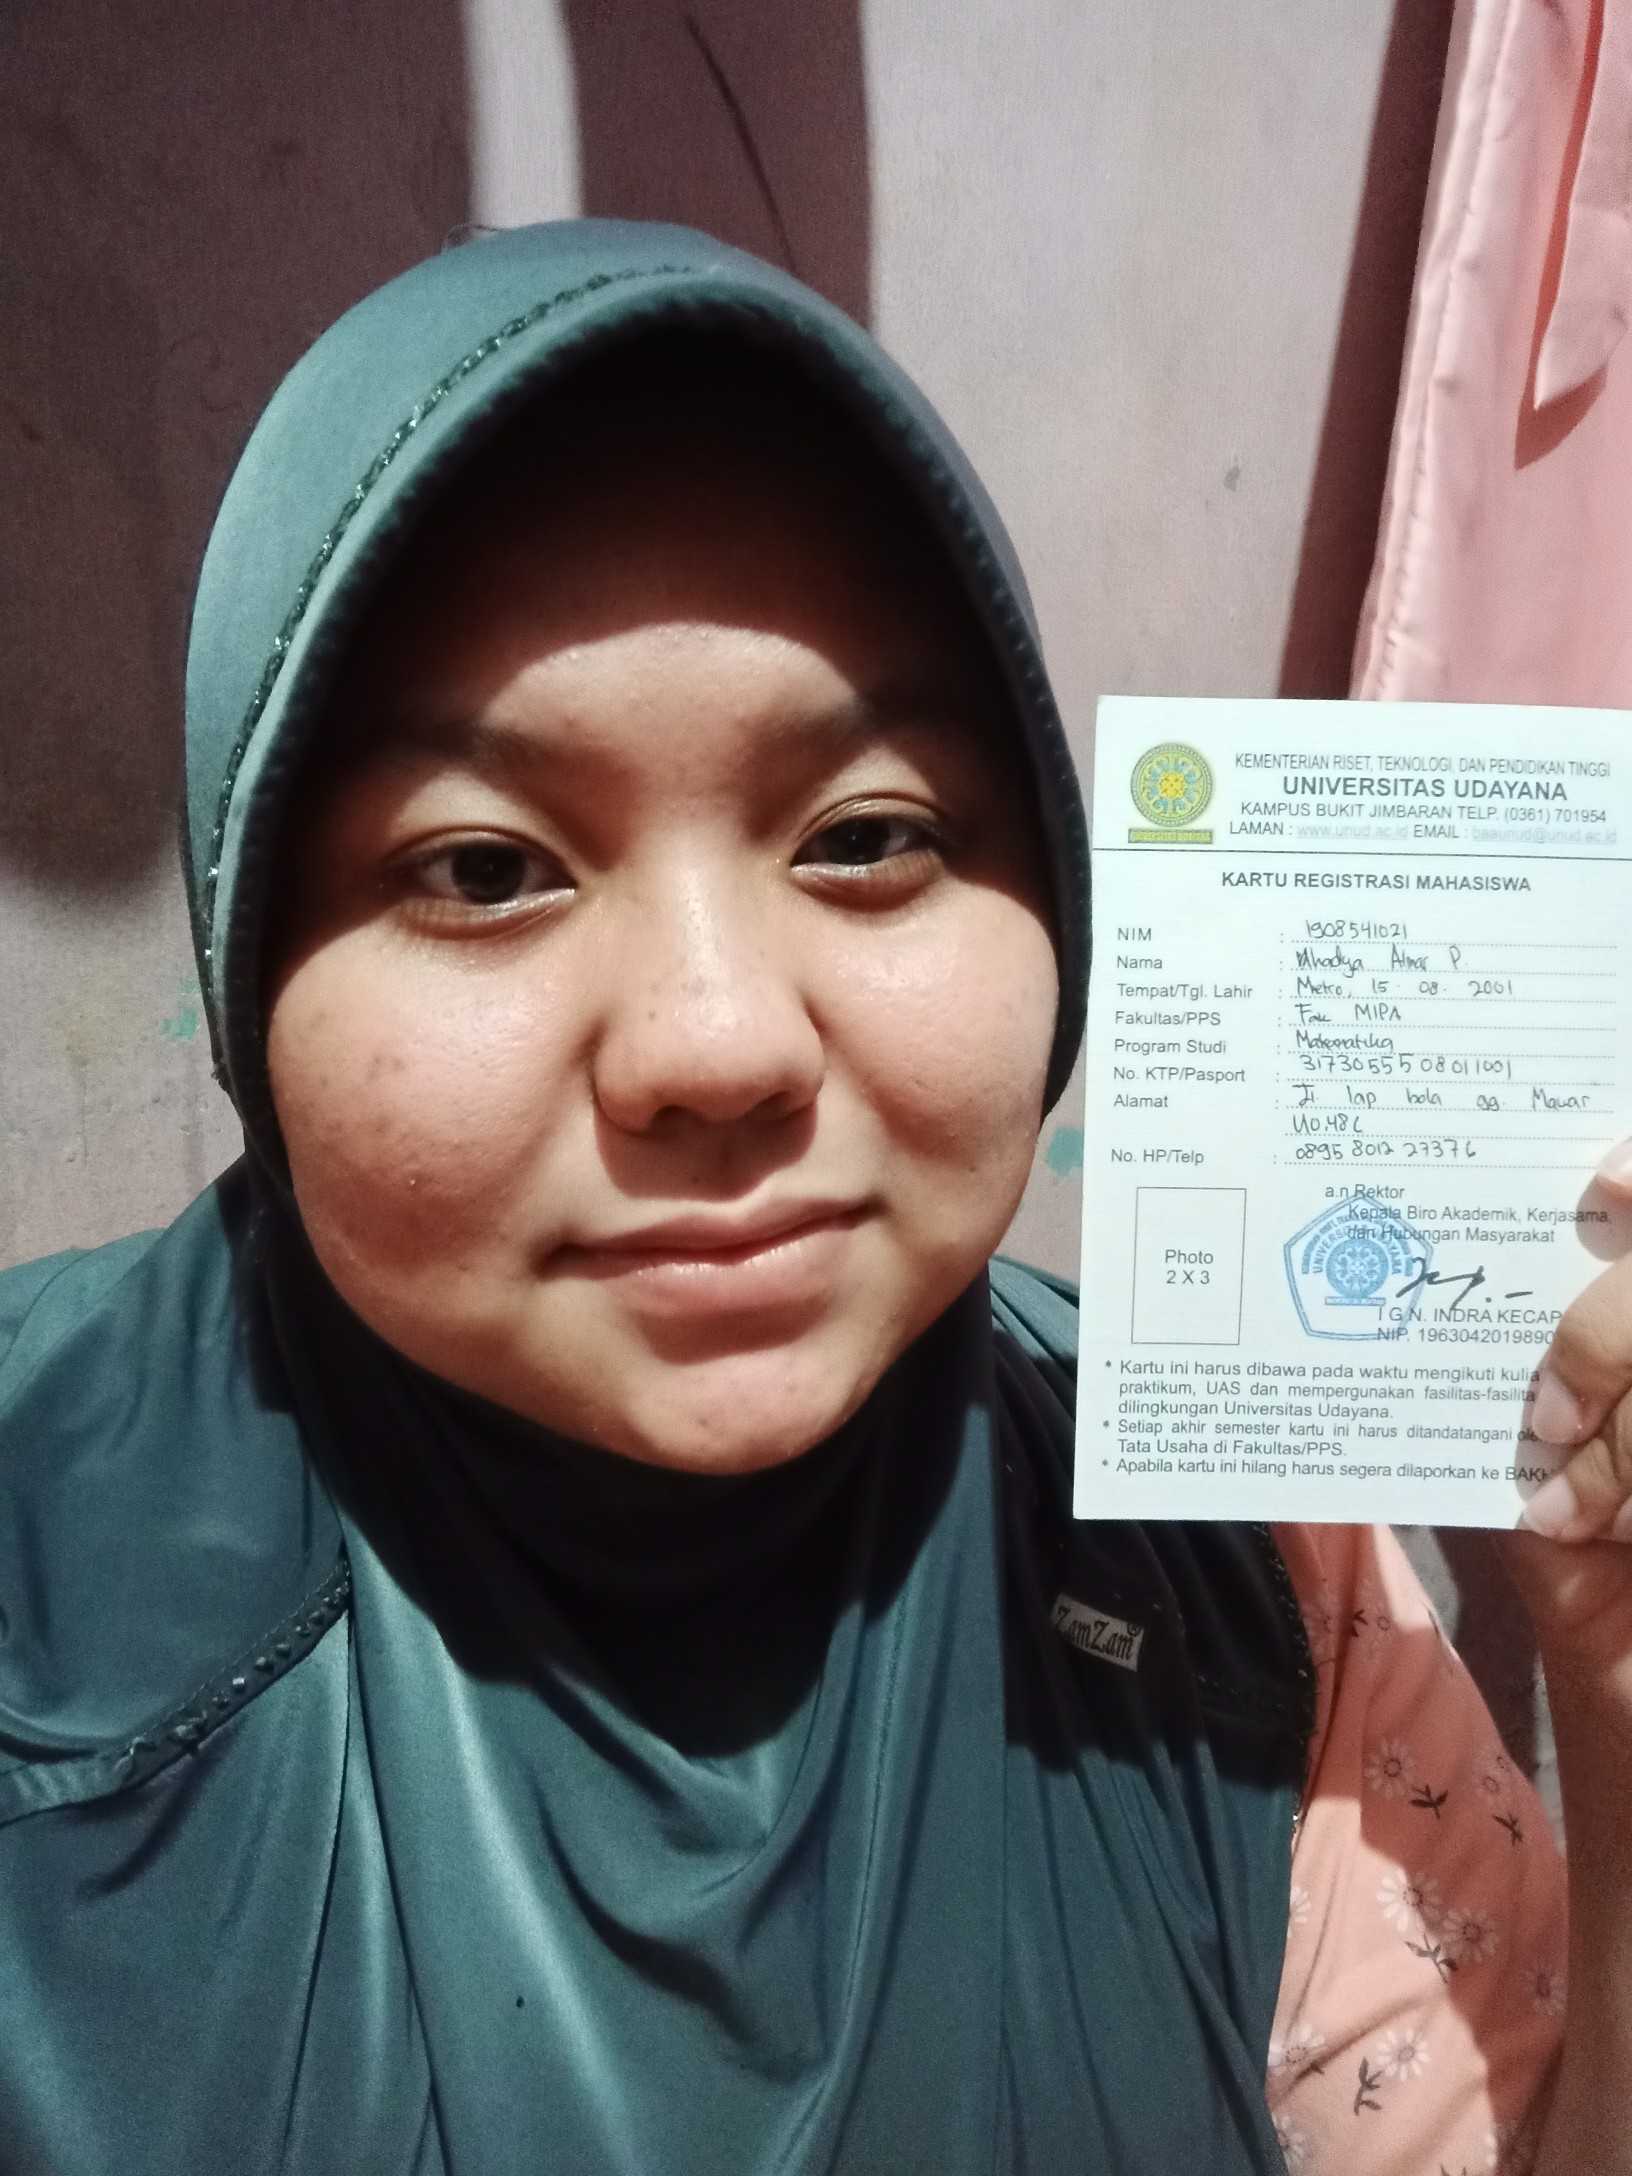 KEMENTERIAN RISET, TEKNOLOGI, DAN PENDIDIKAN TINGGI
UNIVERSITAS UDAYANA
KAMPUS BUKIT JIMBARAN TELP. (0361) 701954
LAMAN : www.unud.ac.id EMAIL : baaunud@unud.ac.id
KARTU REGISTRASI MAHASISWA
NIM : 1908541021
Nama : Alnar P.
Tempat/Tgl. Lahir : Metro, 15 . 08 . 2001
Fakultas/PPS : Fak MIPA
Program Studi : Matematika
No. KTP/Pasport : 3173055508011001
Alamat : Jl. lap bola gg. Mawar
No.48C
No. HP/Telp : 0895 8012 27376
a.n Rektor
Kepala Biro Akademik, Kerjasama,
dan Hubungan Masyarakat
Photo
2 X 3
UNIVERSITAS UDAYANA
I G N. INDRA KECAP
NIP. 1963042019890
* Kartu ini harus dibawa pada waktu mengikuti kulia
praktikum, UAS dan mempergunakan fasilitas-fasilita
dilingkungan Universitas Udayana.
* Setiap akhir semester kartu ini harus ditandatangani ole
Tata Usaha di Fakultas/PPS.
* Apabila kartu ini hilang harus segera dilaporkan ke BAKH
ZamZam®